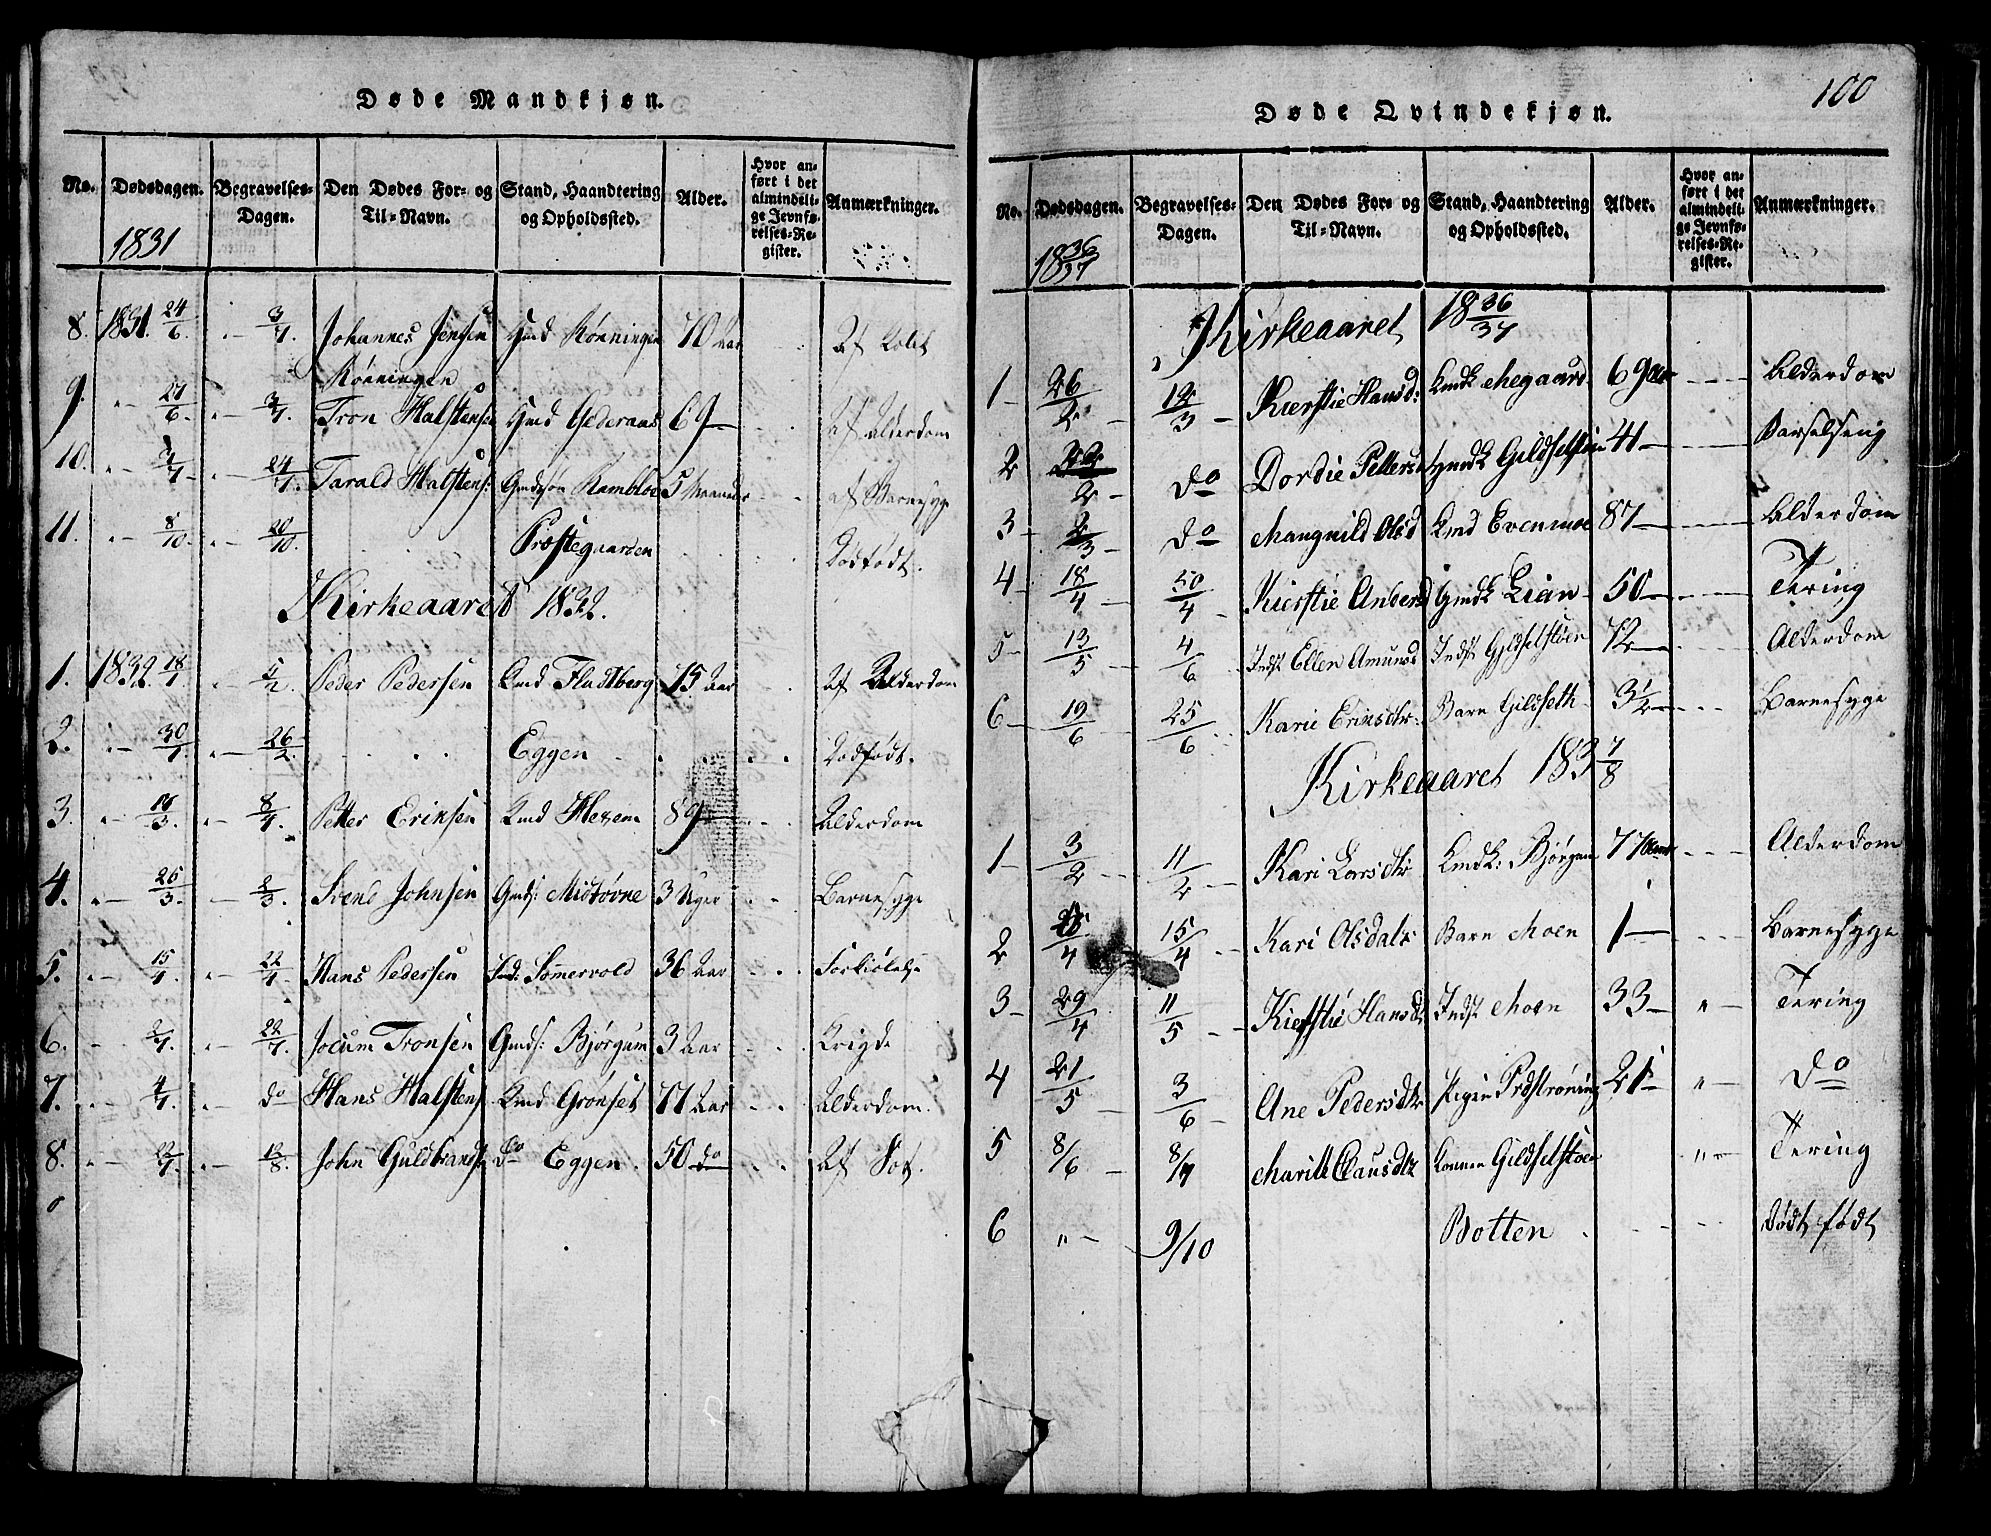 Døde Mandkjøn.
No. Dødsdagen. Begravelses-Dagen. Den Dødes For- og Til-Navn. Stand, Haandtering og Opholdssted. Alder. Hvor anført i det almindelige Jevnførelses-Register. Anmærkninger.
1831
8. 1831. 24/6. 3/7. Johannes Jensen Rønningen Gmd Rønningen 70 Aar
9. 27/6. 3/7. Tron Halstensen Gmd 69 Af Alderdom
10. 24/7. Tarald Halstens: 5 Maaneder af Barnesyge
11. 8/10. 20/10. Præstegaarden Dødfødt.
Kirkeaaret 1832.
1. 1832. 18/1 5/2. Peder Pedersen Kmd Fladtberg 75 Aar Af Alderdom
2. 30/1. 26/2. Eggen Dødfødt.
3. 16/3. 8/4. Petter Eriksen Kmd Hexem 89 Alderdom
4. 26/3. Svend Johnsen Gmds: Midtøvne 3 Uger Barnesyge
5. 15/4. 22/4. Hans Pedersen Sømervold 36 Aar Forkiølelse
6. 22/7. Jocum Tronsen Gmds: Bjørgum 3 Aar
7. 4/7. do Hans Halstens: Kmd Grønset 77 Aar Alderdom.
8. 12/8. John Guldbrands: do Eggen. 50 do Af Sot.
Døde Qvindekjøn.
100
No. Dødsdagen. Begravelses-Dagen. Den Dødes For- og Til-Navn. Stand, Haandtering og Opholdssted. Alder. Hvor anført i det almindelige Jevnførelses-Register. Anmærkninger.
1836/37
Kirkeaaret 1836/37
1 26/2 12/3 Kierstie Hansd: Kmdk Megaard 69 Aar Alderdom
2 do Dordie Petters Gmdk Gildsetstøen 41 Barselseng
3 do Mangnild Olsd Kmd Evenmoe 87 Alderdom
4 18/4 Kierstie Anders Gmdk Lian 50 Tering
5 13/5 4/6 Indst Ellen Amunsd Indst Gjldsetstøen 72 Alderdom
6 19/6 25/6 Karie Eriksdtr. Barn Gildseth 3½ Barnesyge
Kirkeaaret 1837/8
1 3/2 11/2 Kari Larsdtr Kmdk: Bjørgen 77 Aar Alderdom
2 15/4 Kari Olsdatr Barn Moen 1 Barnesyge
3 29/4 11/5 Kierstie Hansdtr Indst Moen 33 Tering
4 21/5 3/6 Ane Pedersdtr Pigen 21 do
5 8/6 8/7 Marith Clausdtr Konen Gildsetstøen Tering
6 9/10 Botten Dødtfødt